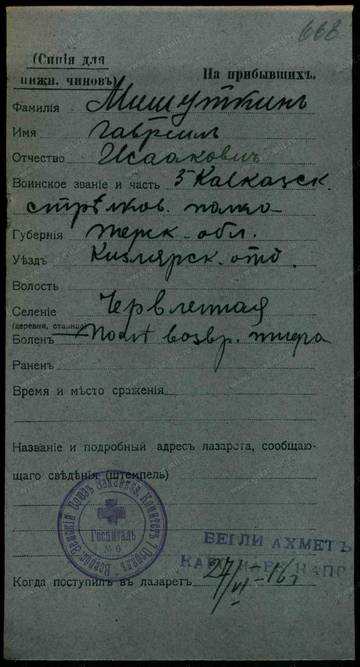 668
(Синія для нижн. чиновъ)
На прибывшихъ.
Фамилія Мишуткинъ
Имя Гавріилъ
Отчество Исааковичъ
Воинское званіе и часть 5 Кавказск.
стрѣлков. полка
Губернія Терск. обл.
Уѣздъ Кизлярск. отд.
Волость
Селеніе Червленная
(деревня, станица)
Боленъ возвр. тифа
Раненъ
Время и мѣсто сраженія
Названіе и подробный адресъ лазарета, сообщаю-
щаго свѣдѣнія (штемпель)
Госпиталь
БЕГЛИ АХМЕТЪ
Когда поступилъ въ лазаретъ 27/VI-16 г